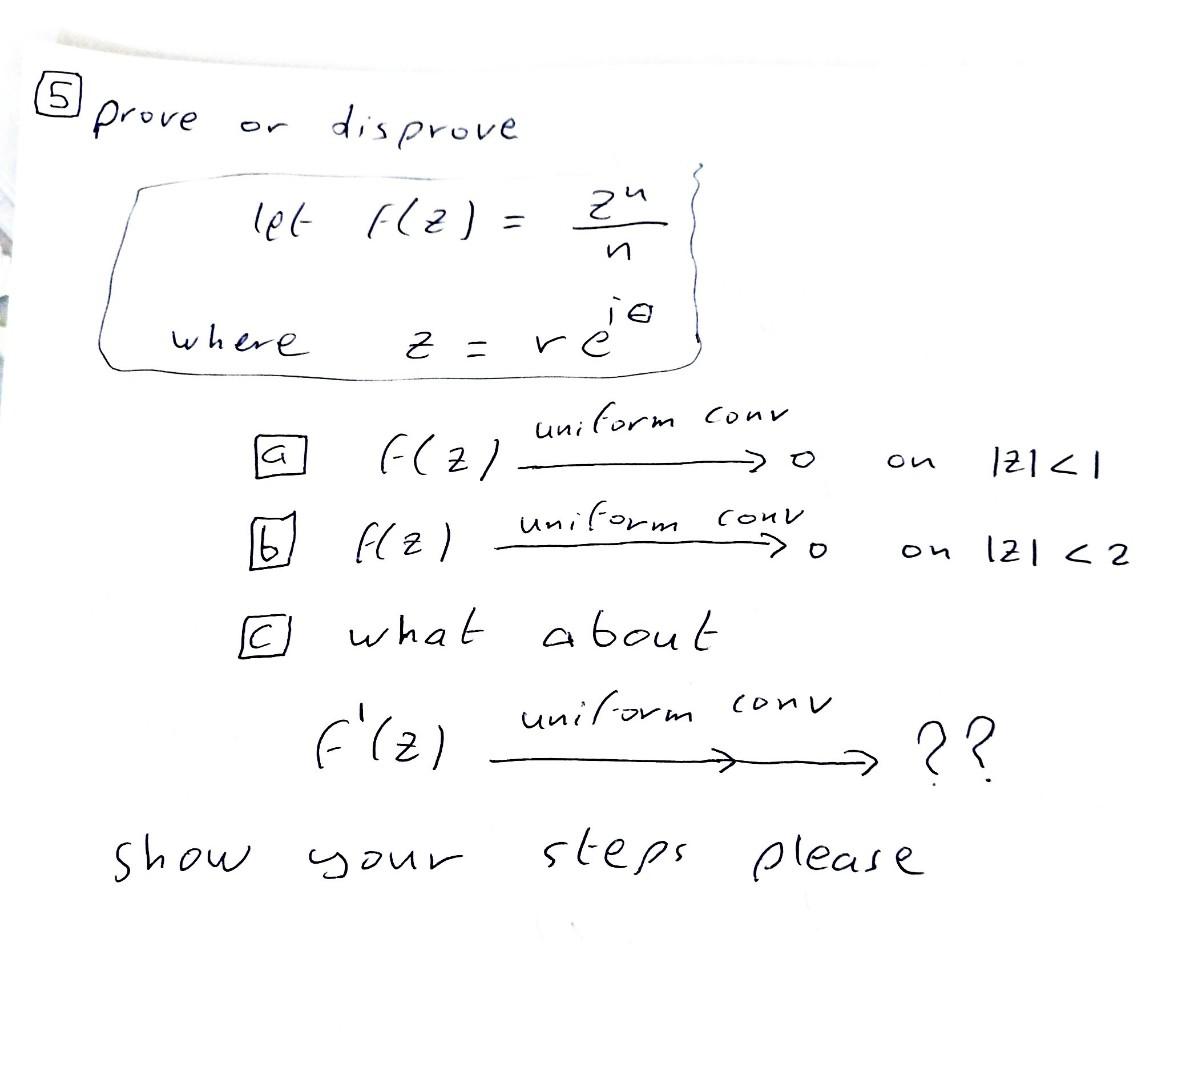 5 prove or disprove
let f(z) = zⁿ/n
where z = re^{iθ}
a f(z) uniform conv → 0 on |z|<1
b f(z) uniform conv → 0 on |z| < 2
c what about
f'(z) uniform conv → → ??
show your steps please